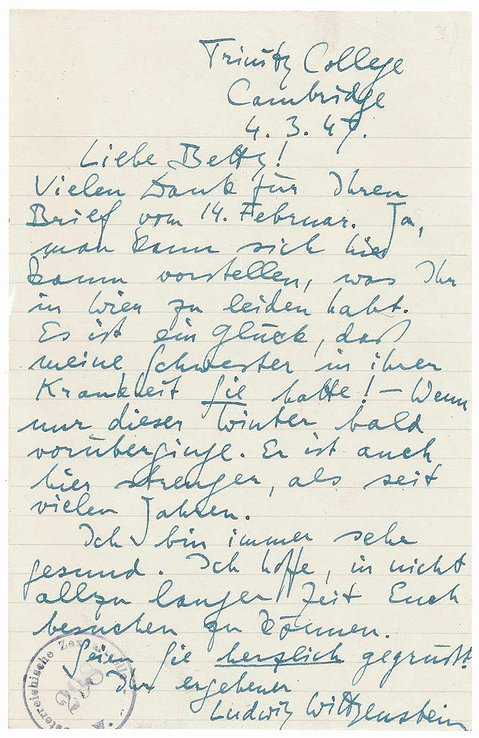 Trinity College
Cambridge
4. 3. 47.
Liebe Betty!
Vielen Dank für Ihren
Brief vom 14. Februar. Ja,
man kann sich hier
kaum vorstellen, was Ihr
in Wien zu leiden habt.
Es ist ein Glück, daß
meine Schwester in ihrer
Krankheit Sie hatte! — Wenn
nur dieser Winter bald
vorüberginge. Er ist auch
hier strenger, als seit
vielen Jahren.
Ich bin immer sehr
gesund. Ich hoffe, in nicht
allzu langer Zeit Euch
besuchen zu können.
Seien Sie herzlich gegrüßt!
Ihr ergebener
Ludwig Wittgenstein